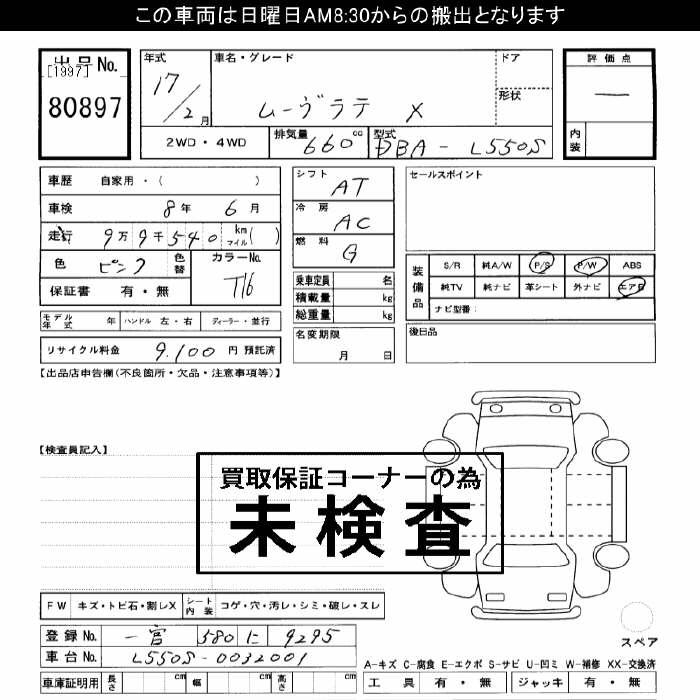 この車両は日曜日AM8:30からの搬出となります
出品No.
[1997]
80897
年式
17/2月
車名・グレード
ムーヴラテ X
ドア
形状
評価点
―
内装
2WD・4WD
排気量 660cc
型式 DBA-L550S
車歴 自家用・( )
車検 8年 6月
走行 9万9千540 km マイル( )
色 ピンク 色替
カラーNo. T16
保証書 有・無
モデル年式 年 ハンドル 左・右 ディーラー・並行
リサイクル料金 9,100 円 預託済
シフト AT
冷房 AC
燃料 G
乗車定員 名
積載量 kg
総重量 kg
名変期限
月 日
セールスポイント
装備品
S/R 純A/W P/S P/W ABS
純TV 純ナビ 革シート 外ナビ エアB
ナビ型番:
後日品
【出品店申告欄(不良箇所・欠品・注意事項等)】
【検査員記入】
買取保証コーナーの為
未検査
FW キズ・トビ石・割レX シート内装 コゲ・穴・汚レ・シミ・破レ・スレ
登録No. 一宮 580 に 9295
車台No. L550S-0032001
車庫証明用 長さ cm 幅 cm 高さ cm
スペア
A-キズ C-腐食 E-エクボ S-サビ U-凹ミ W-補修 XX-交換済
工具 有・無 ジャッキ 有・無